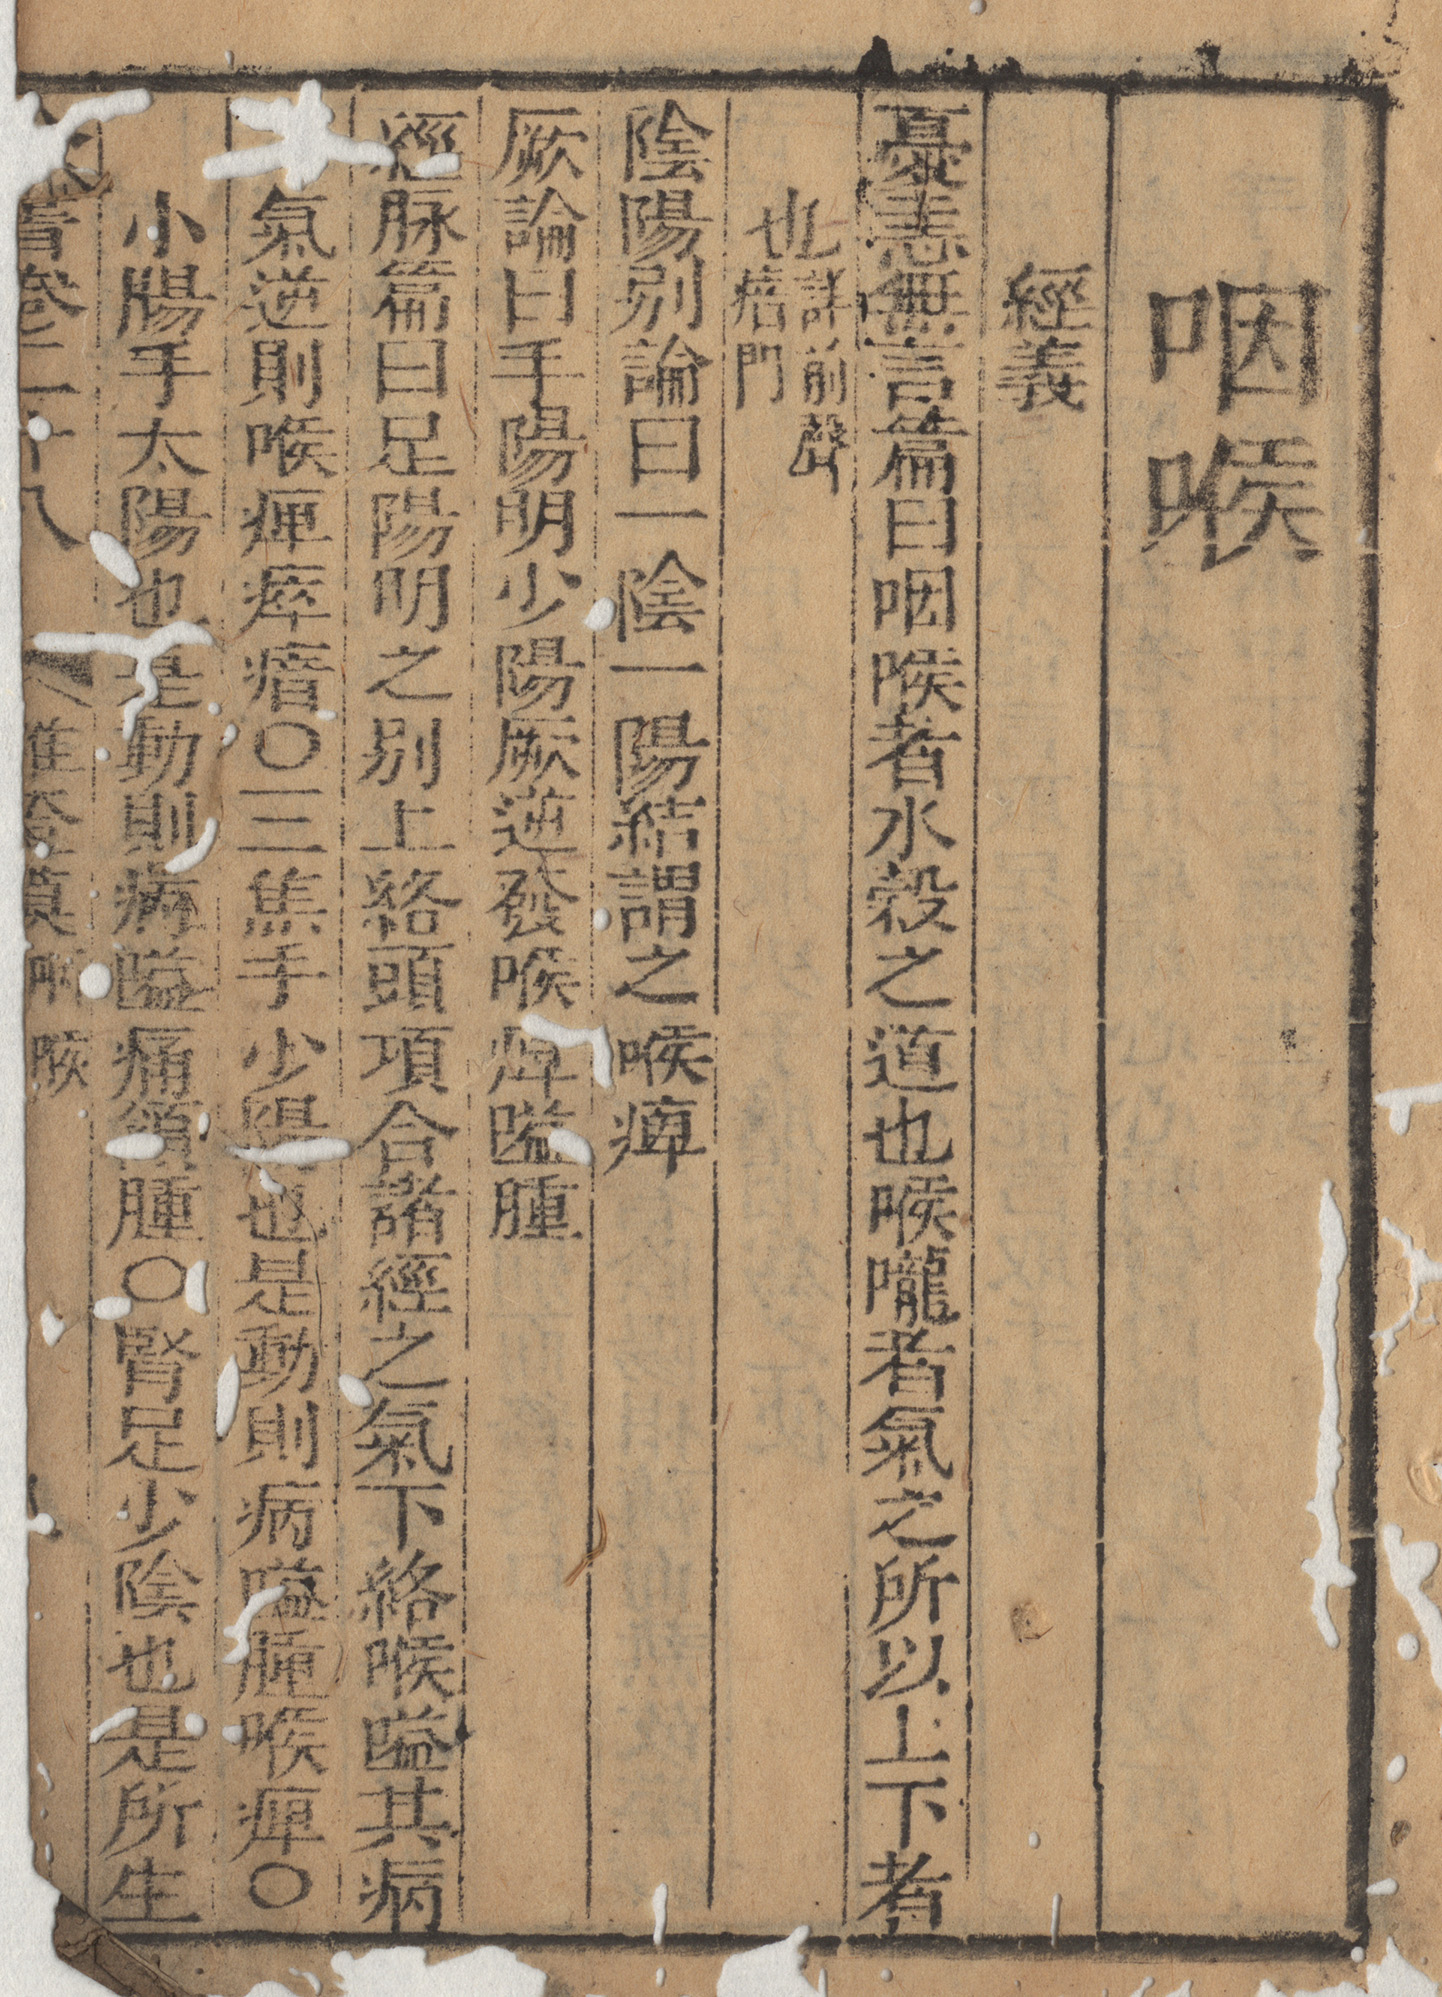 咽喉
經義
憂恚無言篇曰咽喉者水穀之道也喉嚨者氣之所以上下者
也詳前聲瘖門
陰陽別論曰一陰一陽結謂之喉痺
厥論曰手陽明少陽厥逆發喉痺嗌腫
經脉篇曰足陽明之別上絡頭項合諸經之氣下絡喉嗌其病
氣逆則喉痺瘁瘖〇三焦手少陽也是動則病嗌腫喉痺〇
小腸手太陽也是動則病嗌痛頷腫〇腎足少陰也是所生
書卷二十八 雜證謨 咽喉